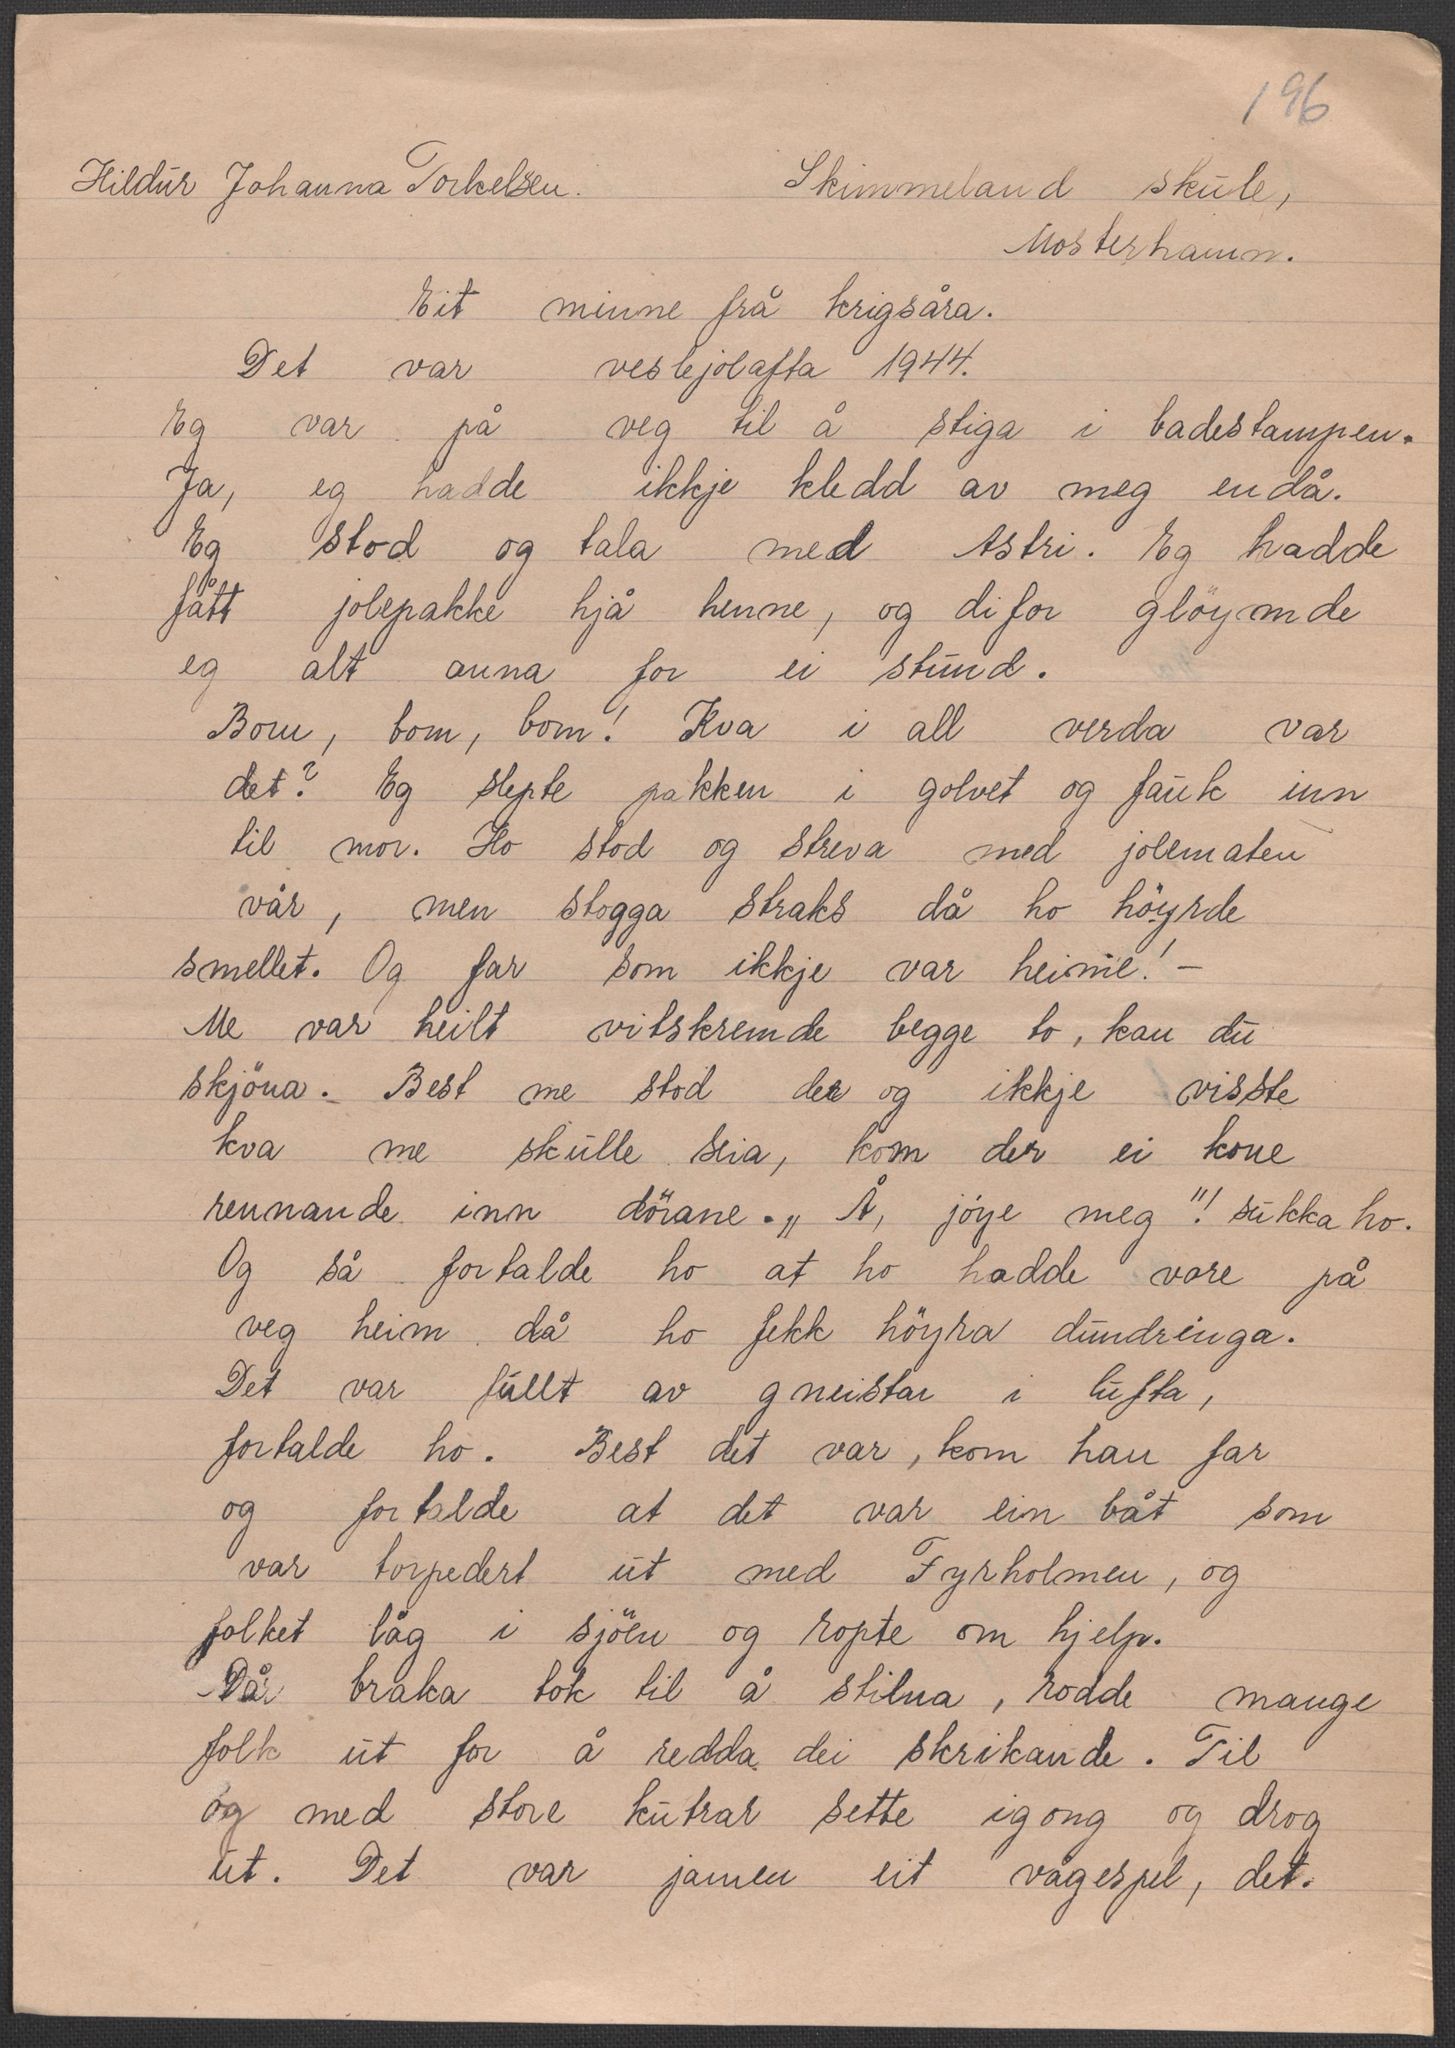 196
Hildur Johanna Torkelsen. Skimmeland skule,
Mosterhamn.
Eit minne frå krigsåra.
Det var veslejolafta 1944.
Eg var på veg til å stiga i badestampen.
Ja, eg hadde ikkje kledd av meg endå.
Eg stod og tala med Astri. Eg hadde
fått jolepakke hjå henne, og difor glöymde
eg alt anna for ei stund.
Bom, bom, bom! Kva i all verda var
det? Eg slepte pakken i golvet og fauk inn
til mor. Ho stod og streva med jolematen
vår, men stogga straks då ho höyrde
smellet. Og far som ikkje var heime! —
Me var heilt vitskremde begge to, kan du
skjöna. Best me stod der og ikkje visste
kva me skulle seia, kom der ei kone
rennande inn dörane. „Å, jöye meg"! sukka ho.
Og så fortalde ho at ho hadde vore på
veg heim då ho fekk höyra dundringa.
Det var fullt av gneistar i lufta,
fortalde ho. Best det var, kom han far
og fortalde at det var ein båt som
var torpedert ut med Fyrholmen, og
folket låg i sjöen og ropte om hjelp.
Då braka tok til å stilna, rodde mange
folk ut for å redda dei skrikande. Til
og med store kutrar sette igong og drog
ut. Det var jamen eit vågespel, det.